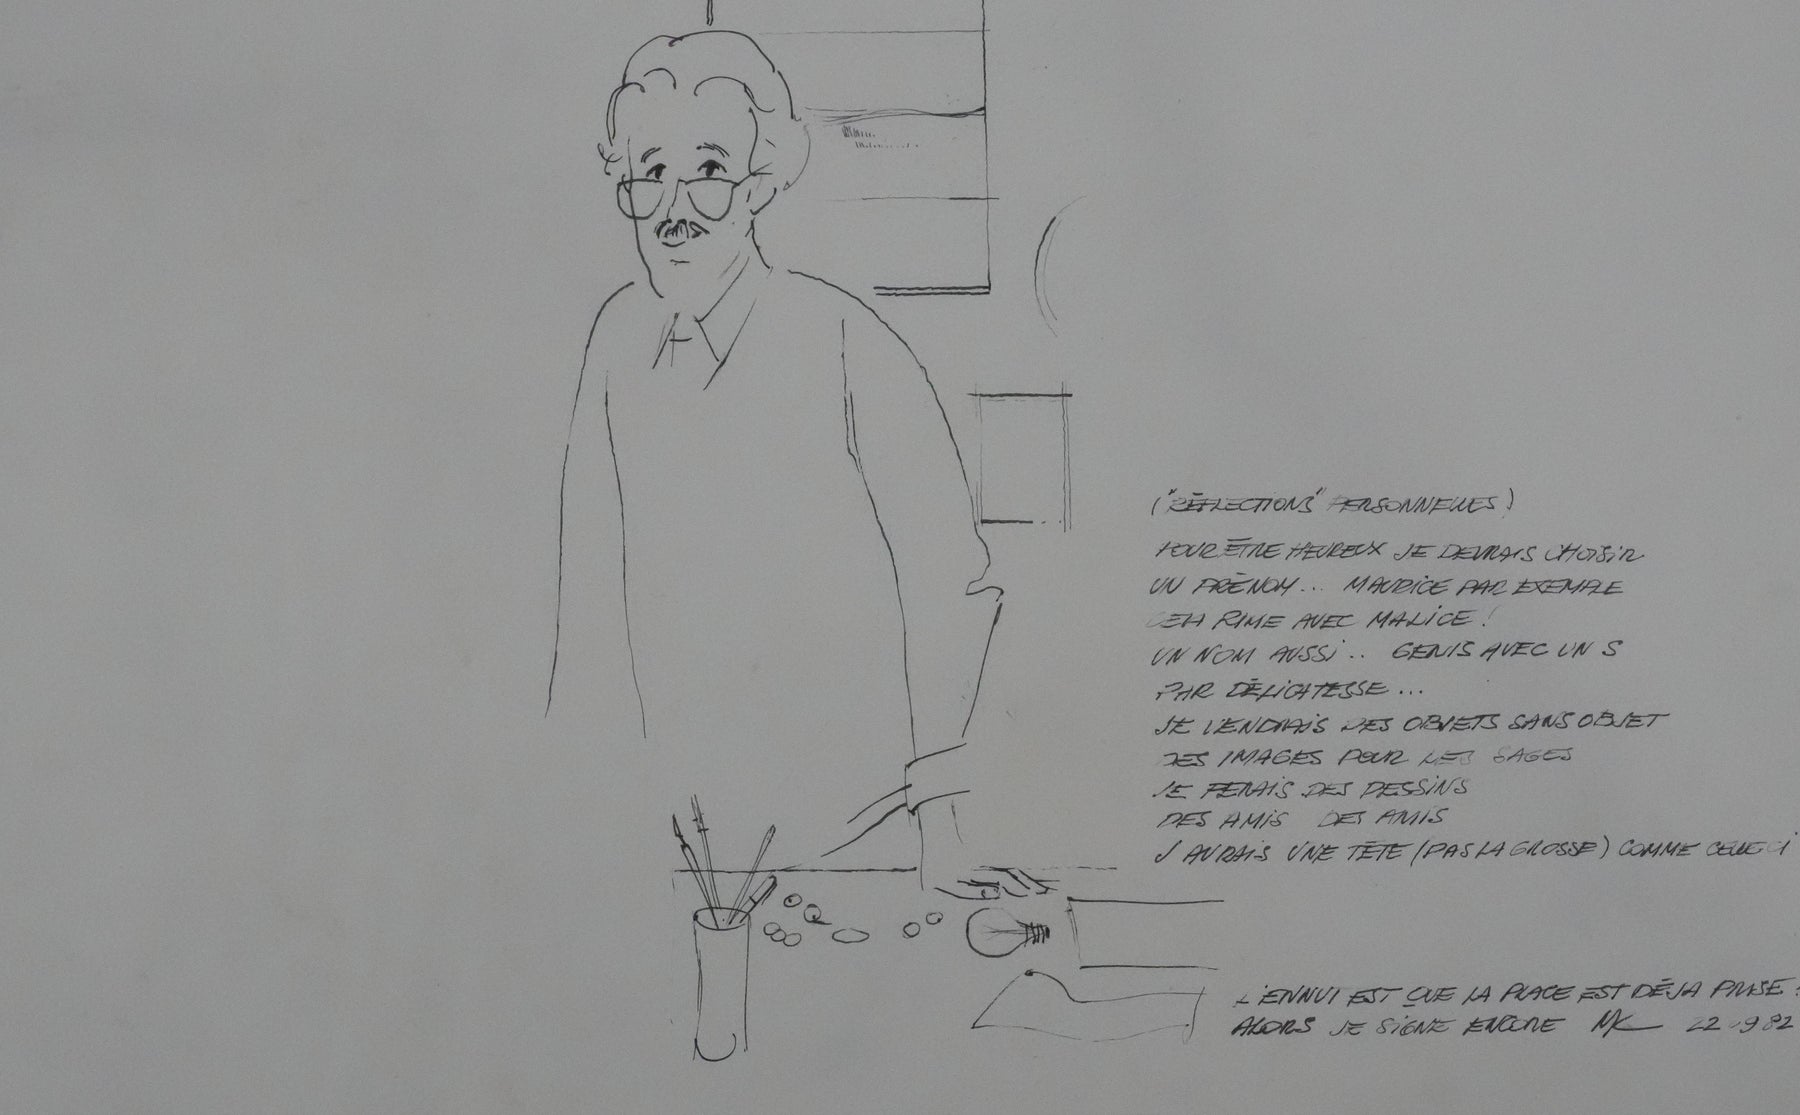 ("RÉFLECTIONS" PERSONNELLES)
POUR ÊTRE HEUREUX JE DEVRAIS CHOISIR
UN PRÉNOM... MAURICE PAR EXEMPLE
CELA RIME AVEC MALICE !
UN NOM AUSSI.. GENIS AVEC UN S
PAR DÉLICATESSE...
JE VENDRAIS DES OBJETS SANS OBJET
DES IMAGES POUR LES SAGES
JE FERAIS DES DESSINS
DES AMIS DES AMIS
J'AURAIS UNE TÊTE (PAS LA GROSSE) COMME CELLE CI
L'ENNUI EST QUE LA PLACE EST DÉJA PRISE :
ALORS JE SIGNE ENCORE MK 22 9 82